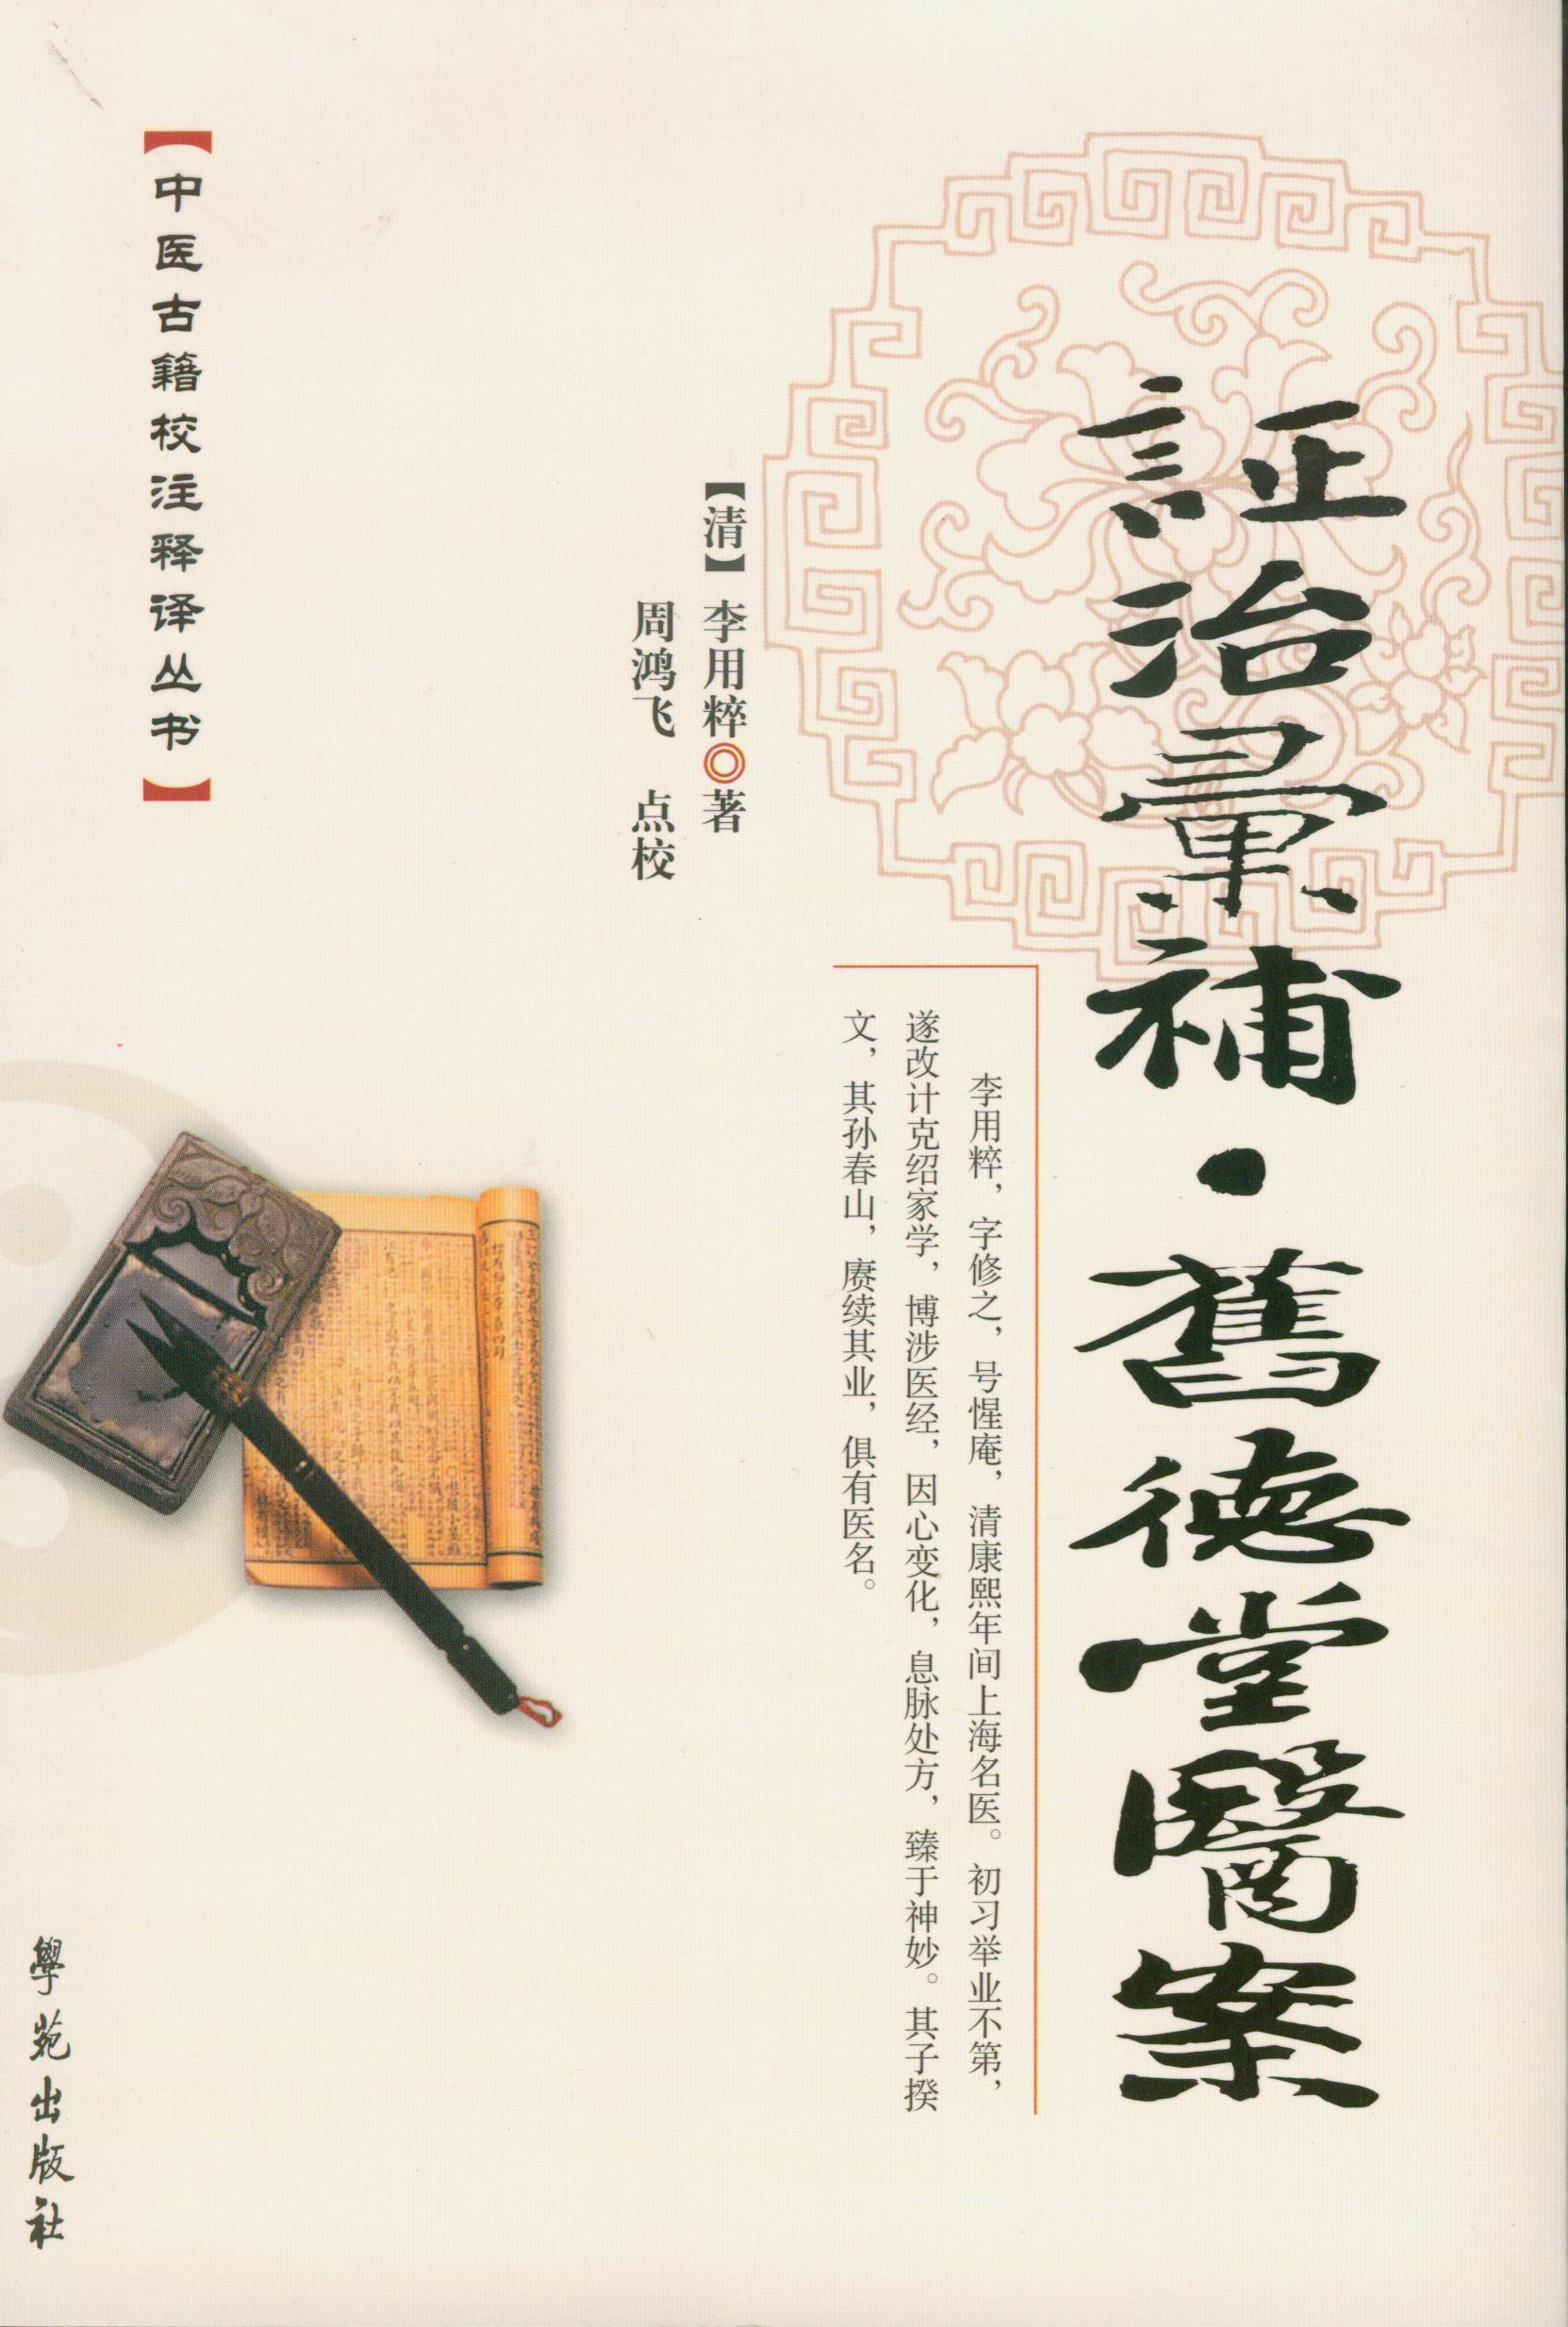 証治彙補·舊德堂醫案
李用粹，字修之，号惺庵，清康熙年间上海名医。初习举业不第，
遂改计克绍家学，博涉医经，因心变化，息脉处方，臻于神妙。其子揆
文，其孙春山，赓续其业，俱有医名。
【清】李用粹◎著
周鸿飞 点校
【中医古籍校注释译丛书】
學苑出版社